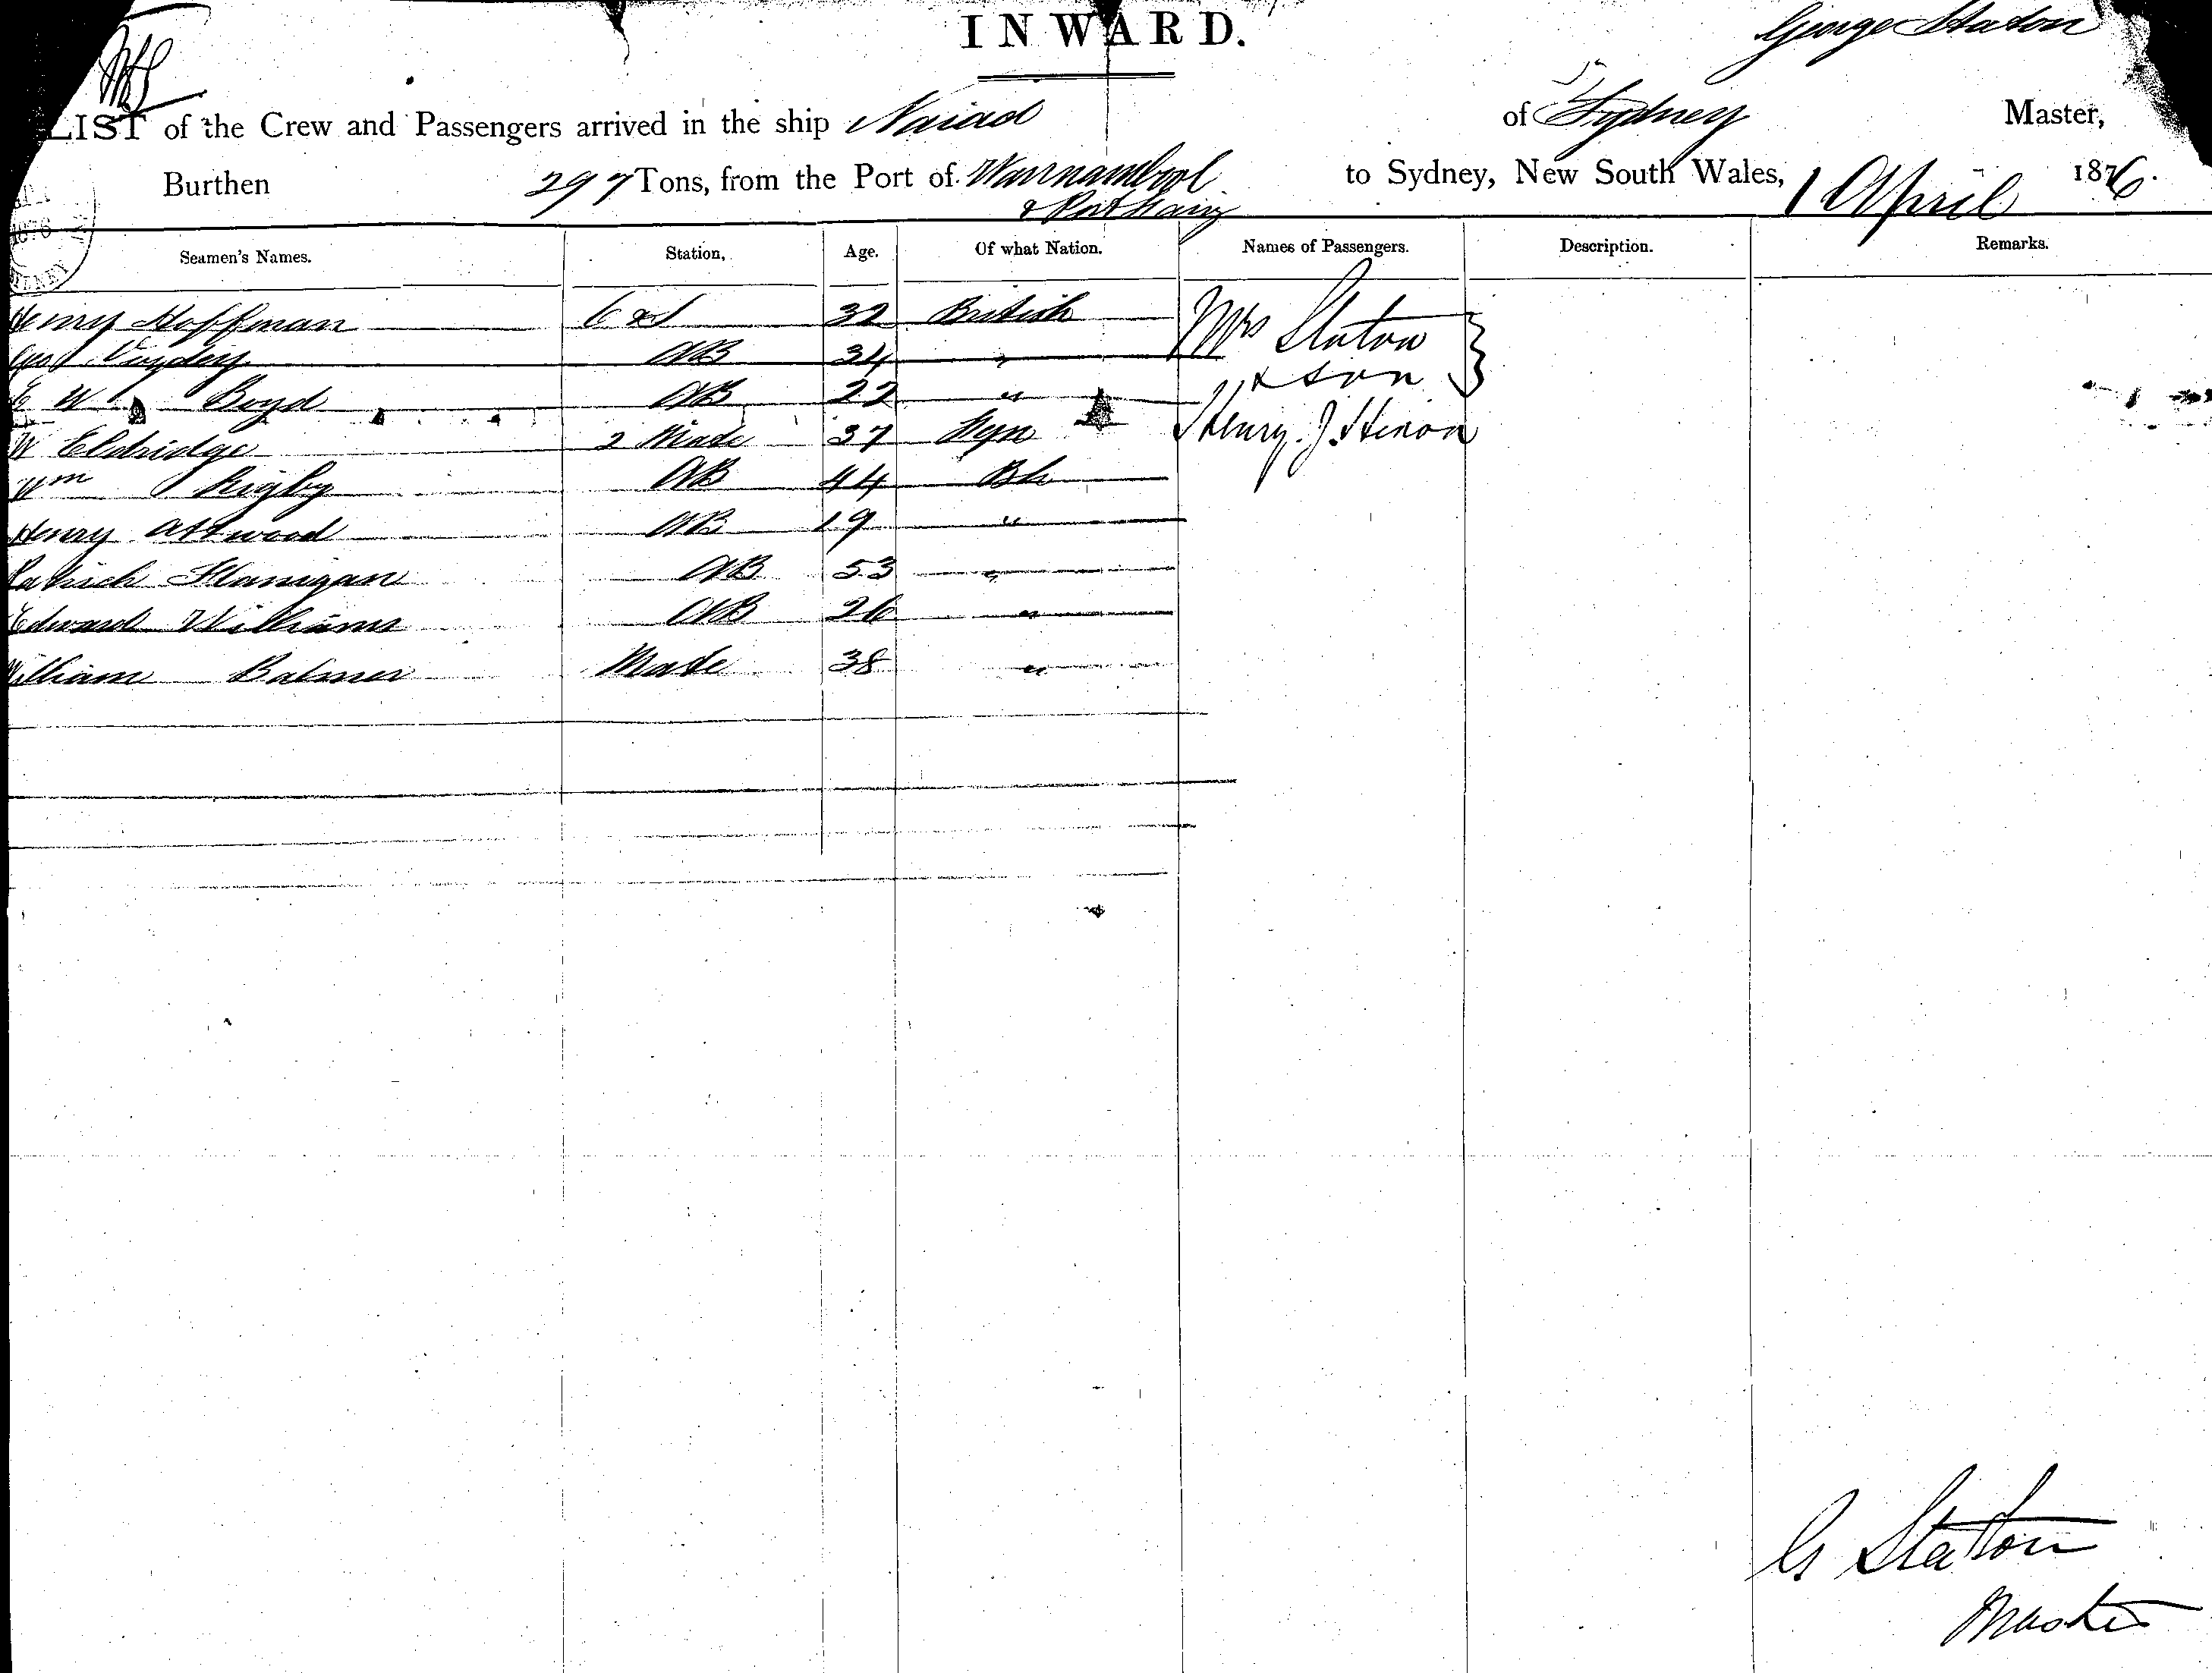 INWARD.
George Staton
LIST of the Crew and Passengers arrived in the ship Naiad of Sydney Master,
Burthen 297 Tons, from the Port of Warnambool to Sydney, New South Wales, 1 April 1876.
& Port Fairy
Seamen's Names. Station, Age. Of what Nation. Names of Passengers. Description. Remarks.
Henry Hoffman 32 British Mrs Staton
AB 34 " & son
E W Boyd AB 22 "
W Eldridge 2 Mate 37 Henry. J.
Wm Rigby AB 44 Bh
Henry Attwood AB 19 "
Patrick Flanigan AB 53 "
Edward Williams AB 26 "
William Balmer Mate 38 "
G Staton
Master